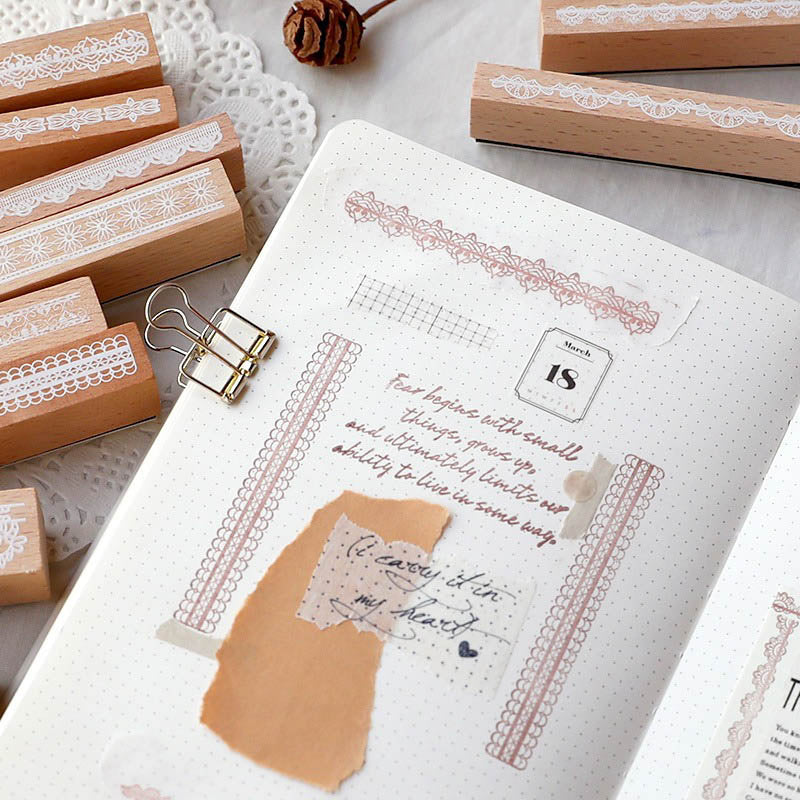 March
18
Fear begins with small
things, grows up,
and ultimately limits our
ability to live in some way.
(i carry it in
my heart
You
the tim
and walk
Sometime
We were so
I have no